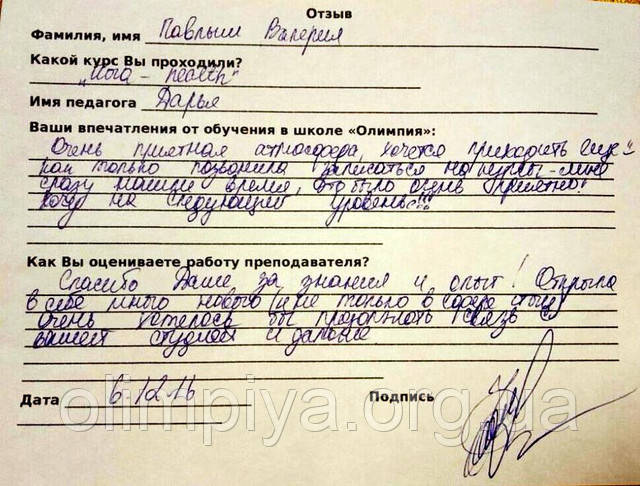 Отзыв
Фамилия, имя Павлыш Валерия
Какой курс Вы проходили?
„Йога - health"
Имя педагога Дарья
Ваши впечатления от обучения в школе «Олимпия»:
Очень приятная атмосфера, хочется приходить еще"
как только позвонила записаться на курсы - мне
сразу нашли время, это было очень приятно!
Хочу на следующий уровень!!!
Как Вы оцениваете работу преподавателя?
Спасибо Даше за знания и опыт! Открыла
в себе много нового и не только о сфере
Очень хотелось бы продолжать связь с
вашей студией и дальше
Дата 6.12.16 Подпись
olimpiya.org.ua